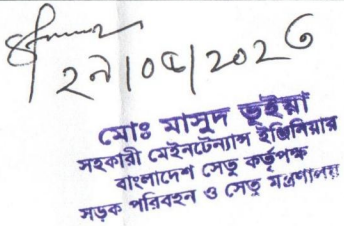 মোঃ মাসুদ ভূইয়া
সহকারী মেইনটেন্যান্স ইঞ্জিনিয়ার
বাংলাদেশ সেতু কর্তৃপক্ষ
সড়ক পরিবহন ও সেতু মন্ত্রণালয়